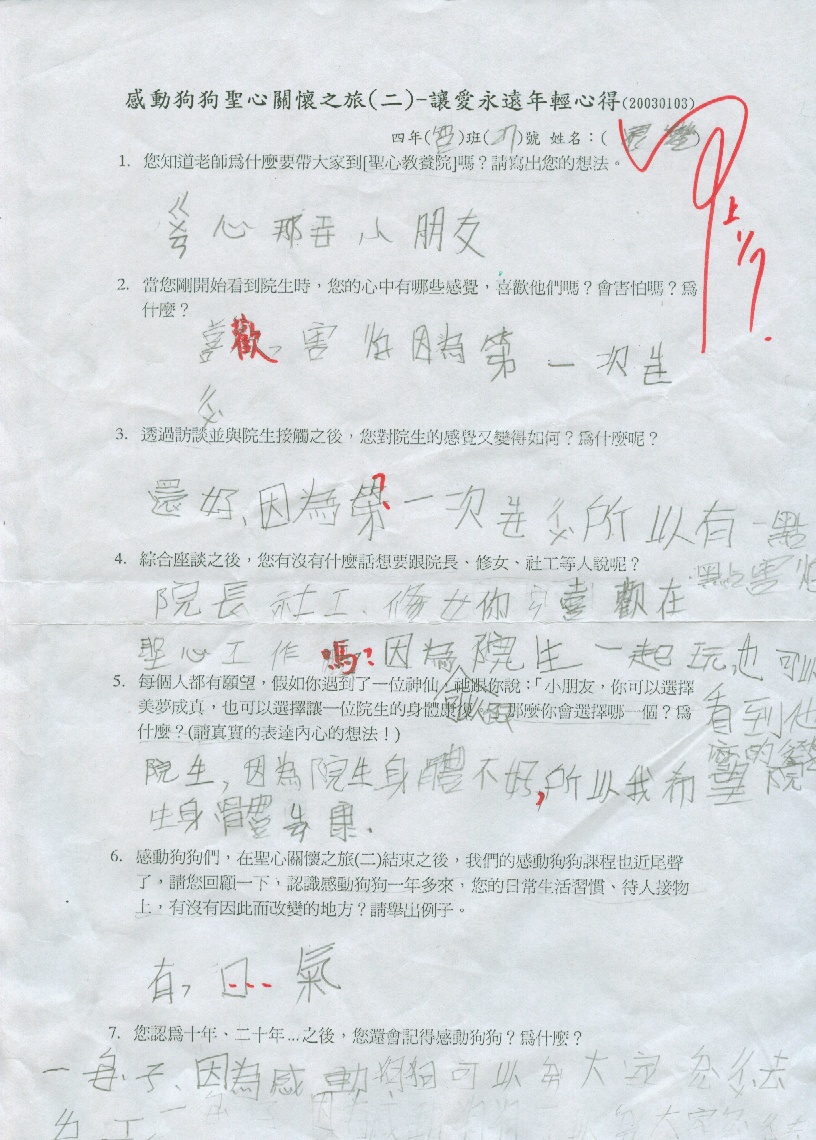 感動狗狗聖心關懷之旅(二)-讓愛永遠年輕心得(20030103)
四年( )班( )號 姓名：( )
甲上 1/7
1. 您知道老師為什麼要帶大家到[聖心教養院]嗎？請寫出您的想法。
心 那 小 朋友
2. 當您剛開始看到院生時，您的心中有哪些感覺，喜歡他們嗎？會害怕嗎？為
什麼？
喜歡，害怕因為第一次
3. 透過訪談並與院生接觸之後，您對院生的感覺又變得如何？為什麼呢？
還好、因為第一次 所以有一點
點害怕
4. 綜合座談之後，您有沒有什麼話想要跟院長、修女、社工等人說呢？
院長社工、修女你 喜歡在
聖心工作嗎？因為院生一起玩也可以
看到他
5. 每個人都有願望，假如你遇到了一位神仙，祂跟你說：「小朋友，你可以選擇
美夢成真，也可以選擇讓一位院生的身體康復」，那麼你會選擇哪一個？為
什麼？(請真實的表達內心的想法！)
院生，因為院生身體不好，所以我希望院
生身體 康.
6. 感動狗狗們，在聖心關懷之旅(二)結束之後，我們的感動狗狗課程也近尾聲
了，請您回顧一下，認識感動狗狗一年多來，您的日常生活習慣、待人接物
上，有沒有因此而改變的地方？請舉出例子。
有， 口…氣
7. 您認為十年、二十年...之後，您還會記得感動狗狗？為什麼？
因為感動狗狗可以 大家 去